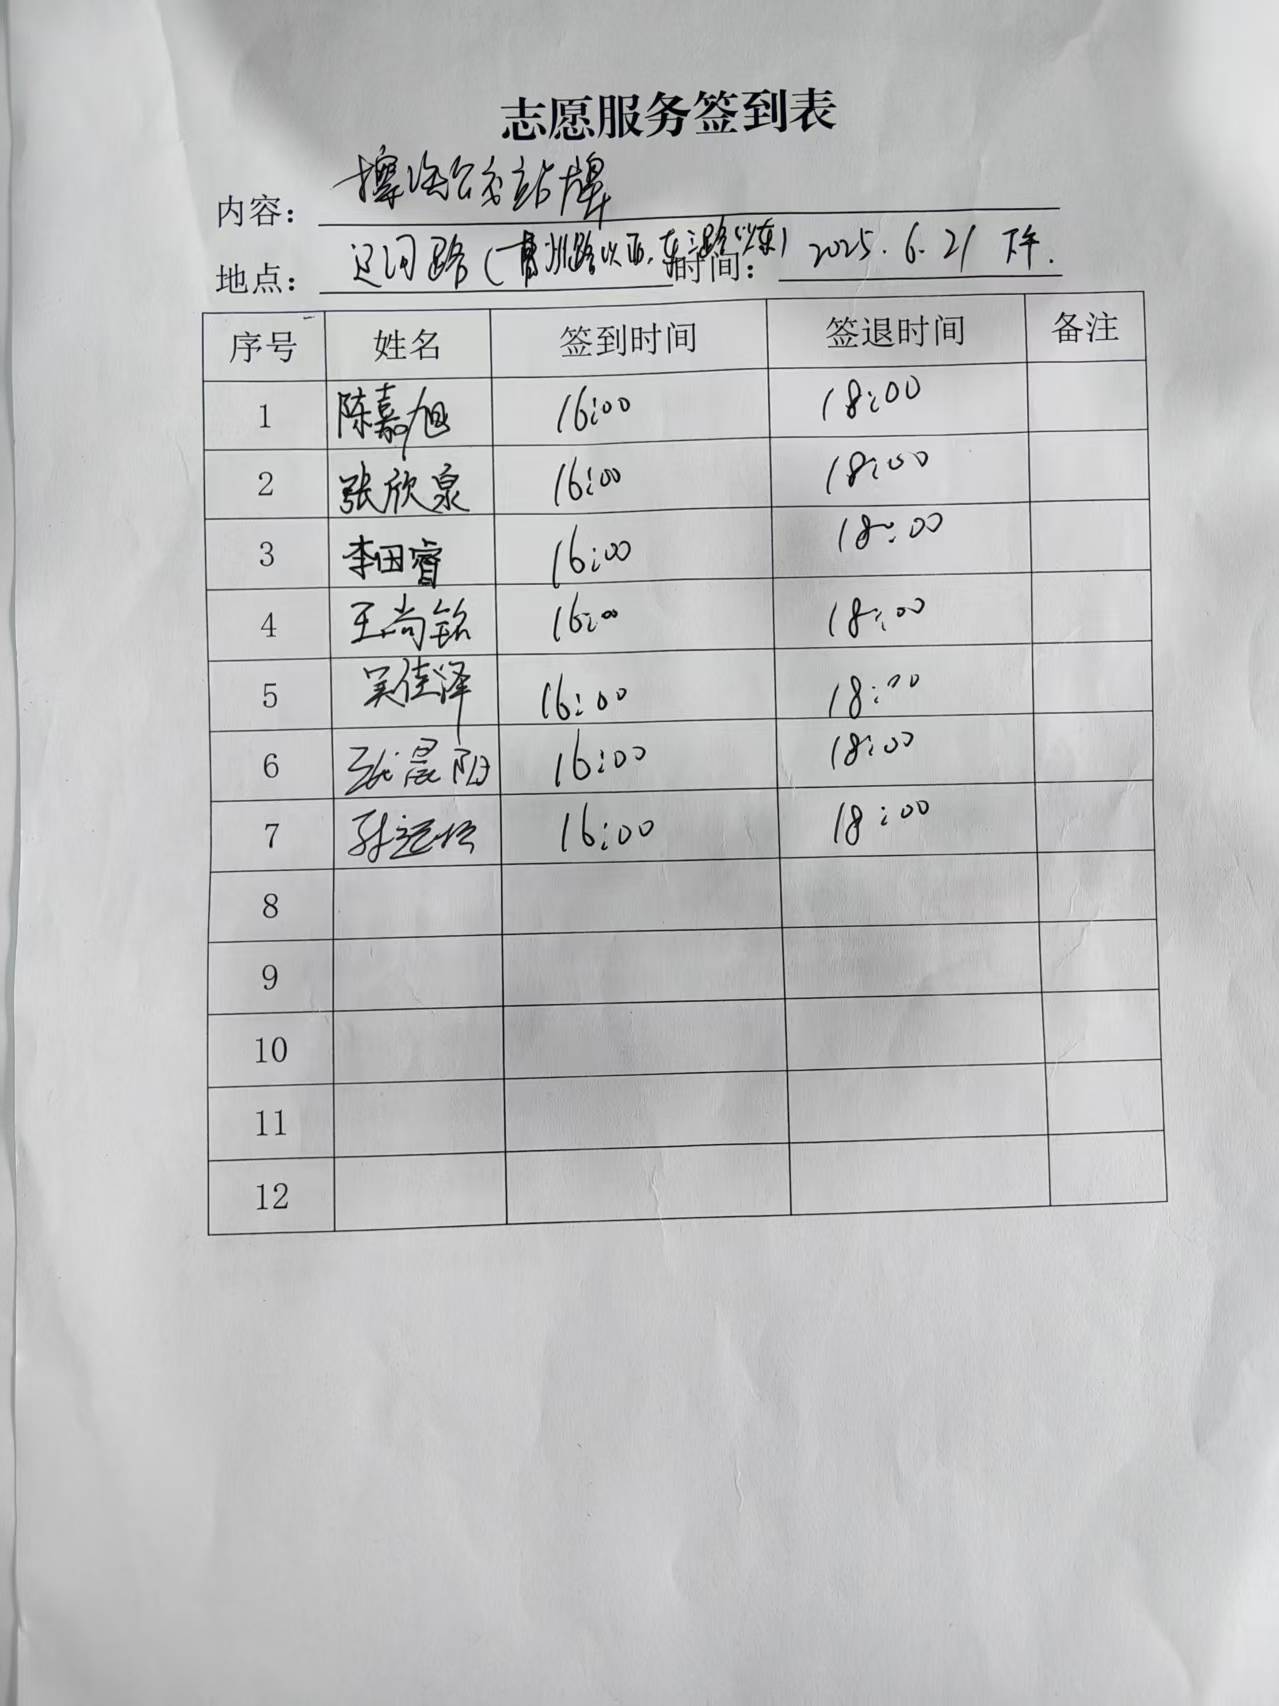 志愿服务签到表
内容： 擦洗公交站牌
地点： 辽河路（青洲路以西，东三路以东） 时间： 2025.6.21 下午.
序号 姓名 签到时间 签退时间 备注
1 陈嘉旭 16:00 18:00
2 张欣泉 16:00 18:00
3 李田睿 16:00 18:00
4 王尚铭 16:00 18:00
5 吴佳泽 16:00 18:00
6 张晨阳 16:00 18:00
7 16:00 18:00
8
9
10
11
12